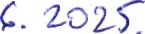 6. 2025.